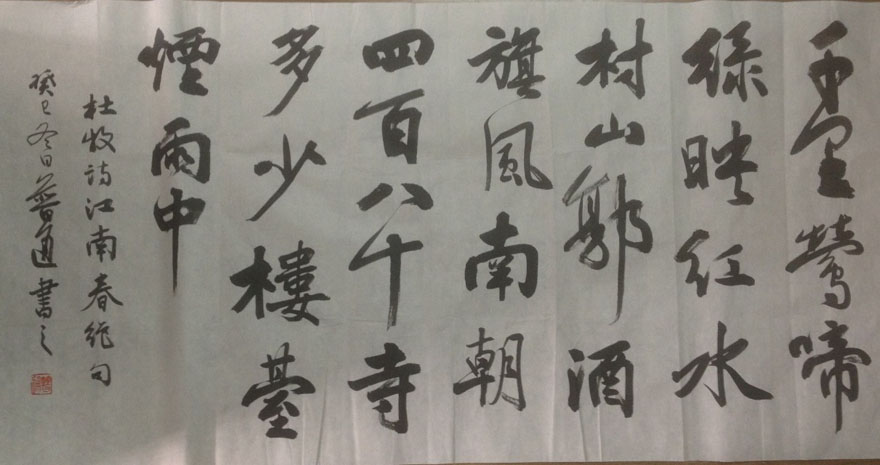 千里鶯啼
绿映红水
村山郭酒
旗風南朝
四百八十寺
多少樓臺
煙雨中
杜牧诗江南春绝句
癸巳冬日普通書之